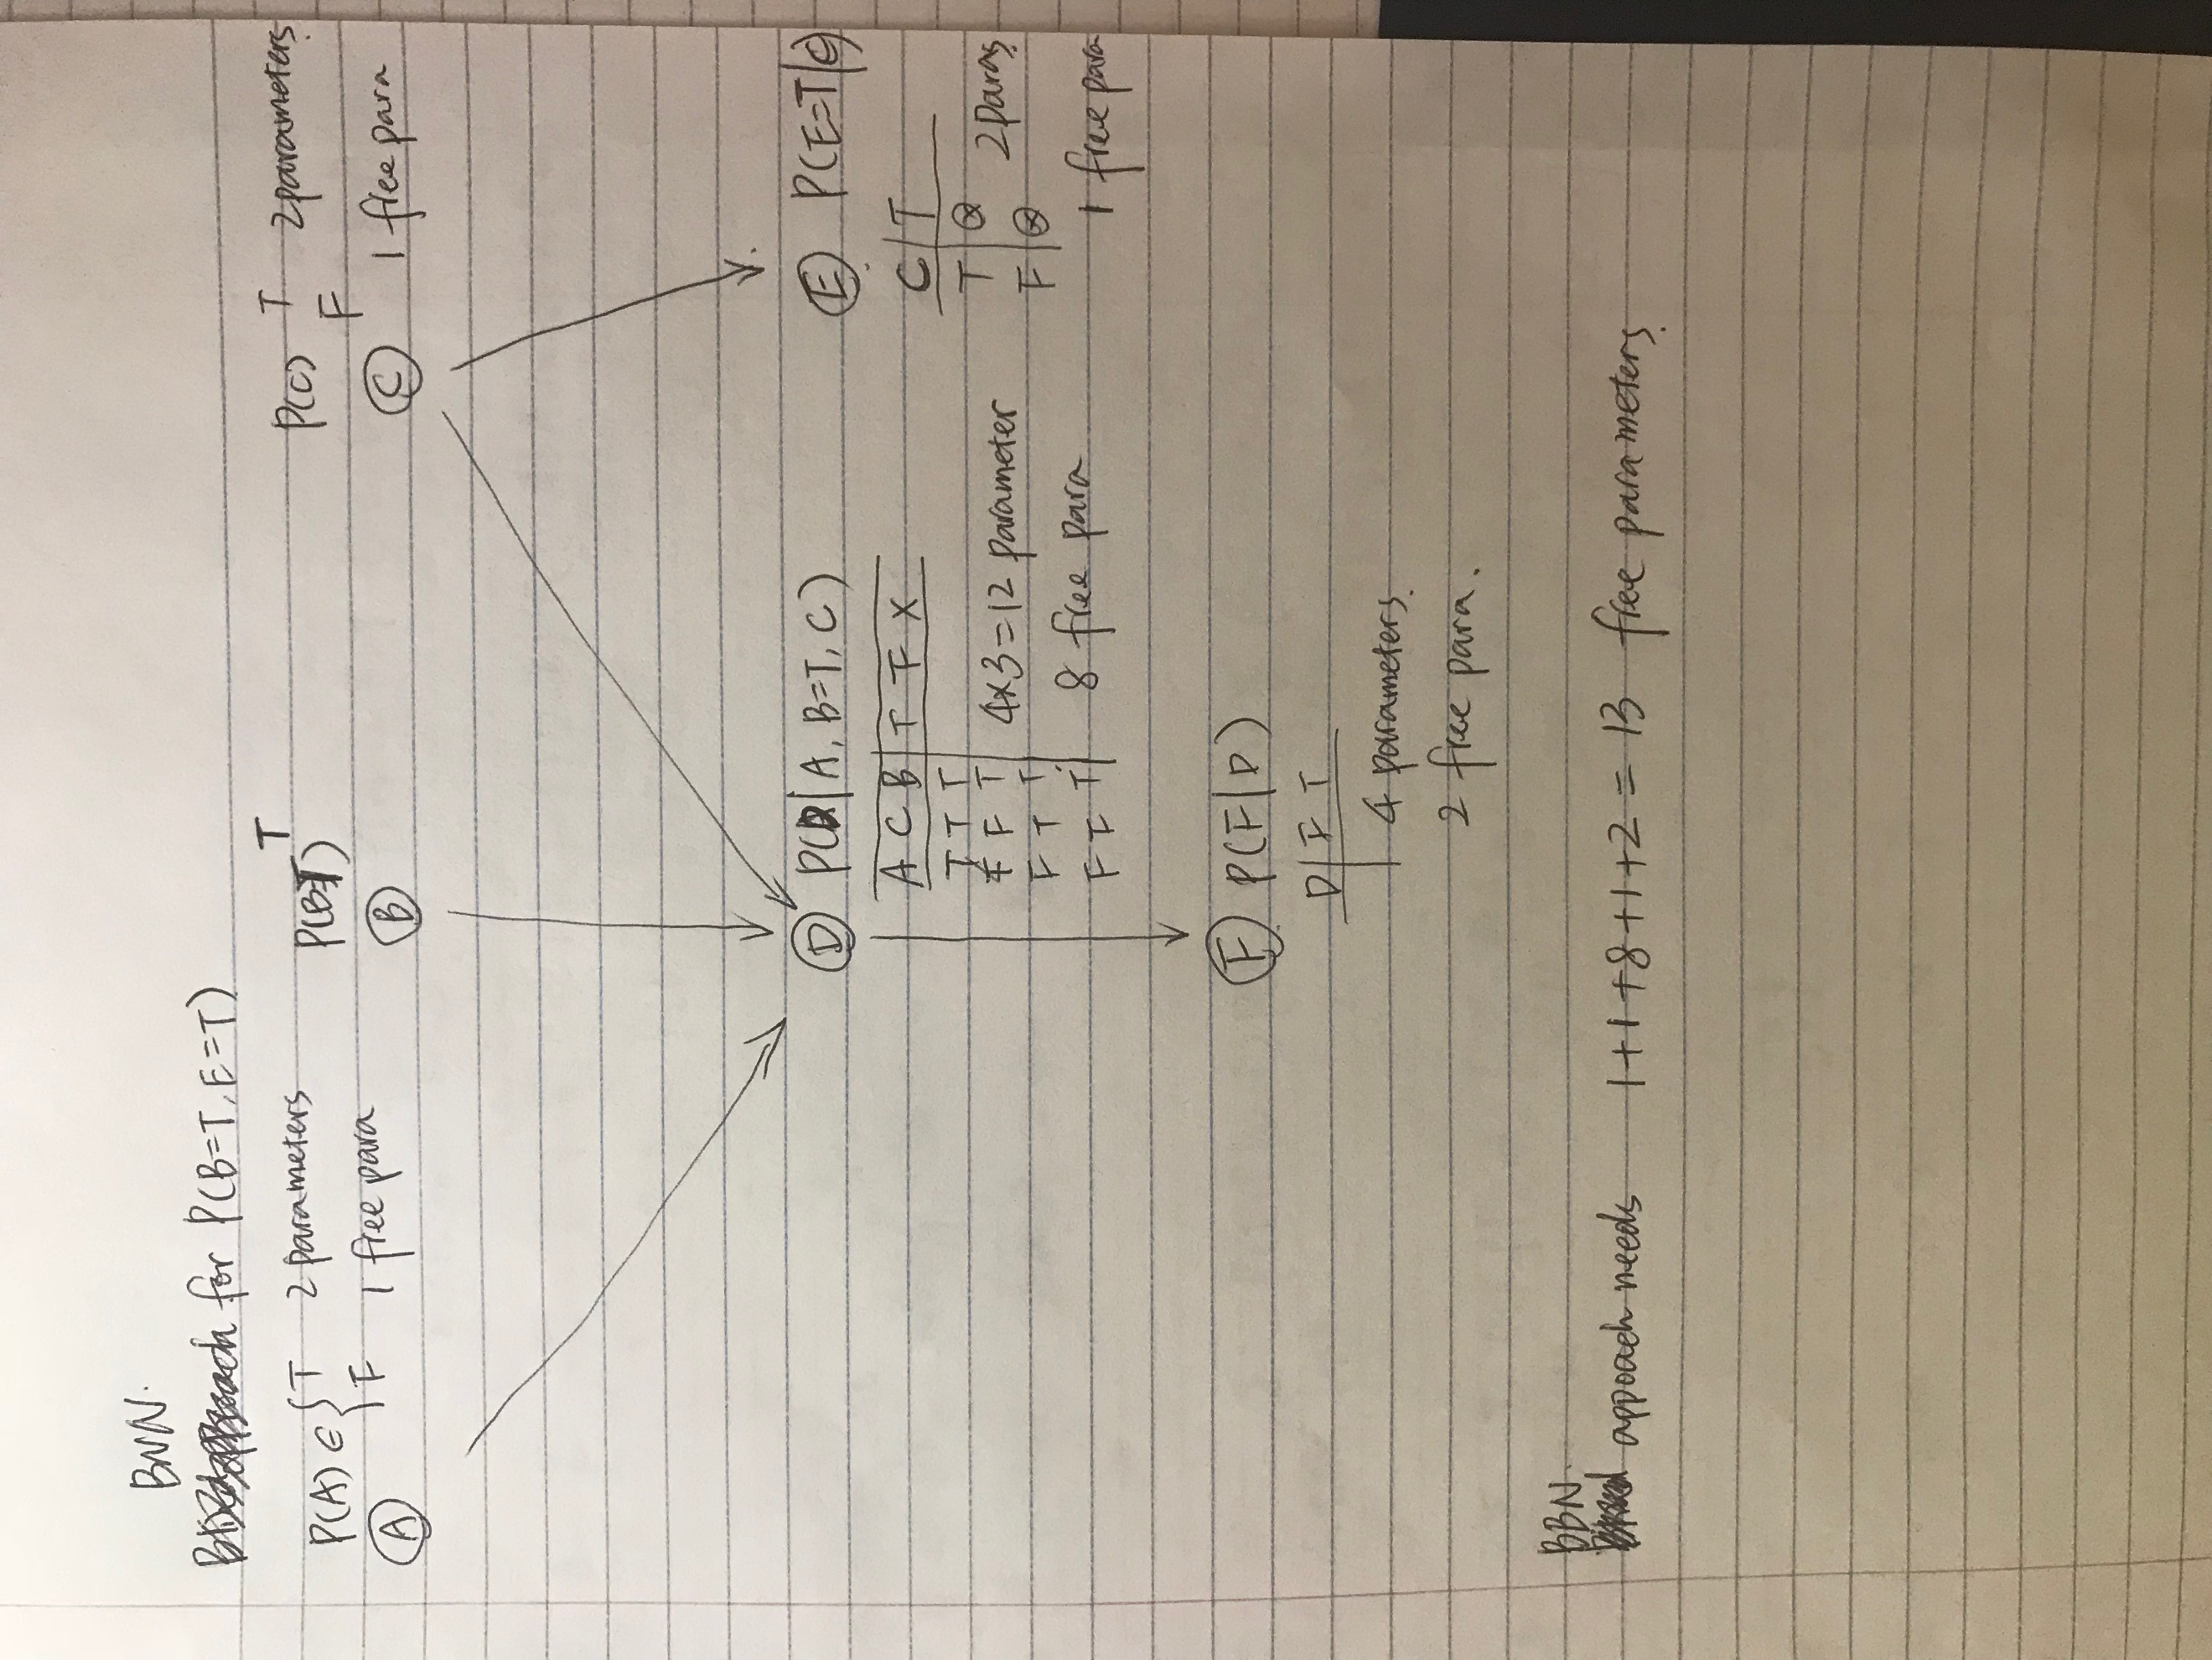 BNN.
for P(B=T, E=T)
P(A) ∈ { T 2 parameters
F 1 free para
A
T
P(B=T)
B
P(C) T 2 parameters.
F 1 free para
C
D P(D|A, B=T, C)
A C B T F X
T T T
F T 4x3=12 parameter
F T T
F F T 8 free para
E P(E=T|C)
C T
T ⊗ 2 paras
F ⊗
1 free para
F P(F|D)
D F T
4 parameters.
2 free para.
BBN
appoach needs 1+1+8+1+2=13 free parameters.